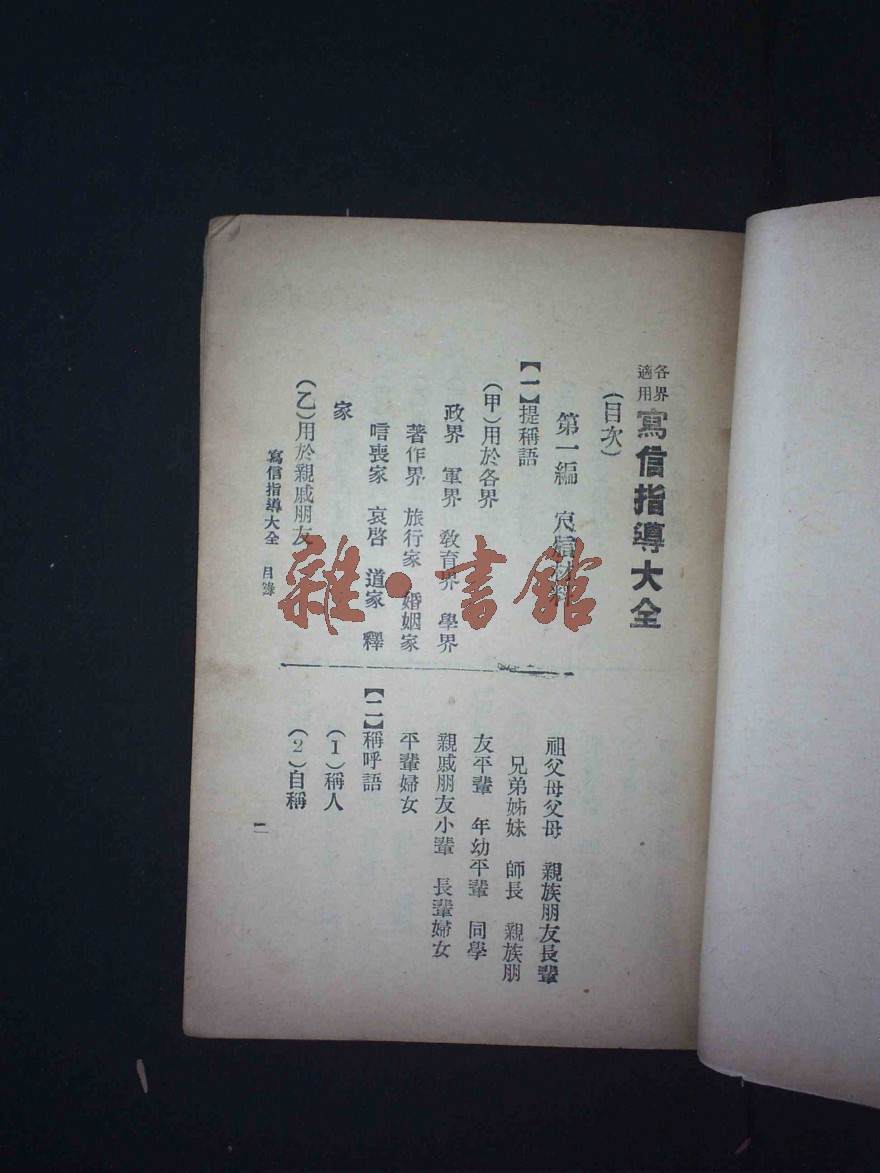 各界適用 寫信指導大全
(目次)
第一編 尺牘材料
【一】提稱語
(甲)用於各界
政界 軍界 教育界 學界
著作界 旅行家 婚姻家
唁喪家 哀啓 道家 釋
家
(乙)用於親戚朋友
祖父母父母 親族朋友長輩
兄弟姊妹 師長 親族朋
友平輩 年幼平輩 同學
親戚朋友小輩 長輩婦女
平輩婦女
【二】稱呼語
(1)稱人
(2)自稱
寫信指導大全 目錄
一
雜·書館